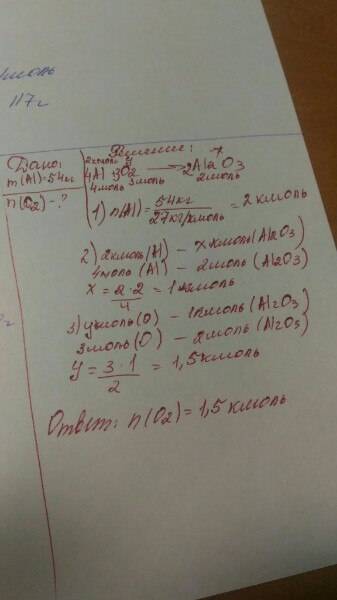 моль
117г
Дано:
m(Al)=54кг
n(O₂)-?
Решение:
2кмоль y x
4Al + 3O₂ → 2Al₂O₃
4моль 3моль 2моль
1) n(Al) = 54кг / 27кг/кмоль = 2 кмоль
2) 2кмоль (Al) - x кмоль (Al₂O₃)
4моль (Al) - 2моль (Al₂O₃)
x = 2·2 / 4 = 1 кмоль
3) y кмоль (O) - 1кмоль (Al₂O₃)
3моль (O) - 2моль (Al₂O₃)
y = 3·1 / 2 = 1,5 кмоль
Ответ: n(O₂) = 1,5 кмоль